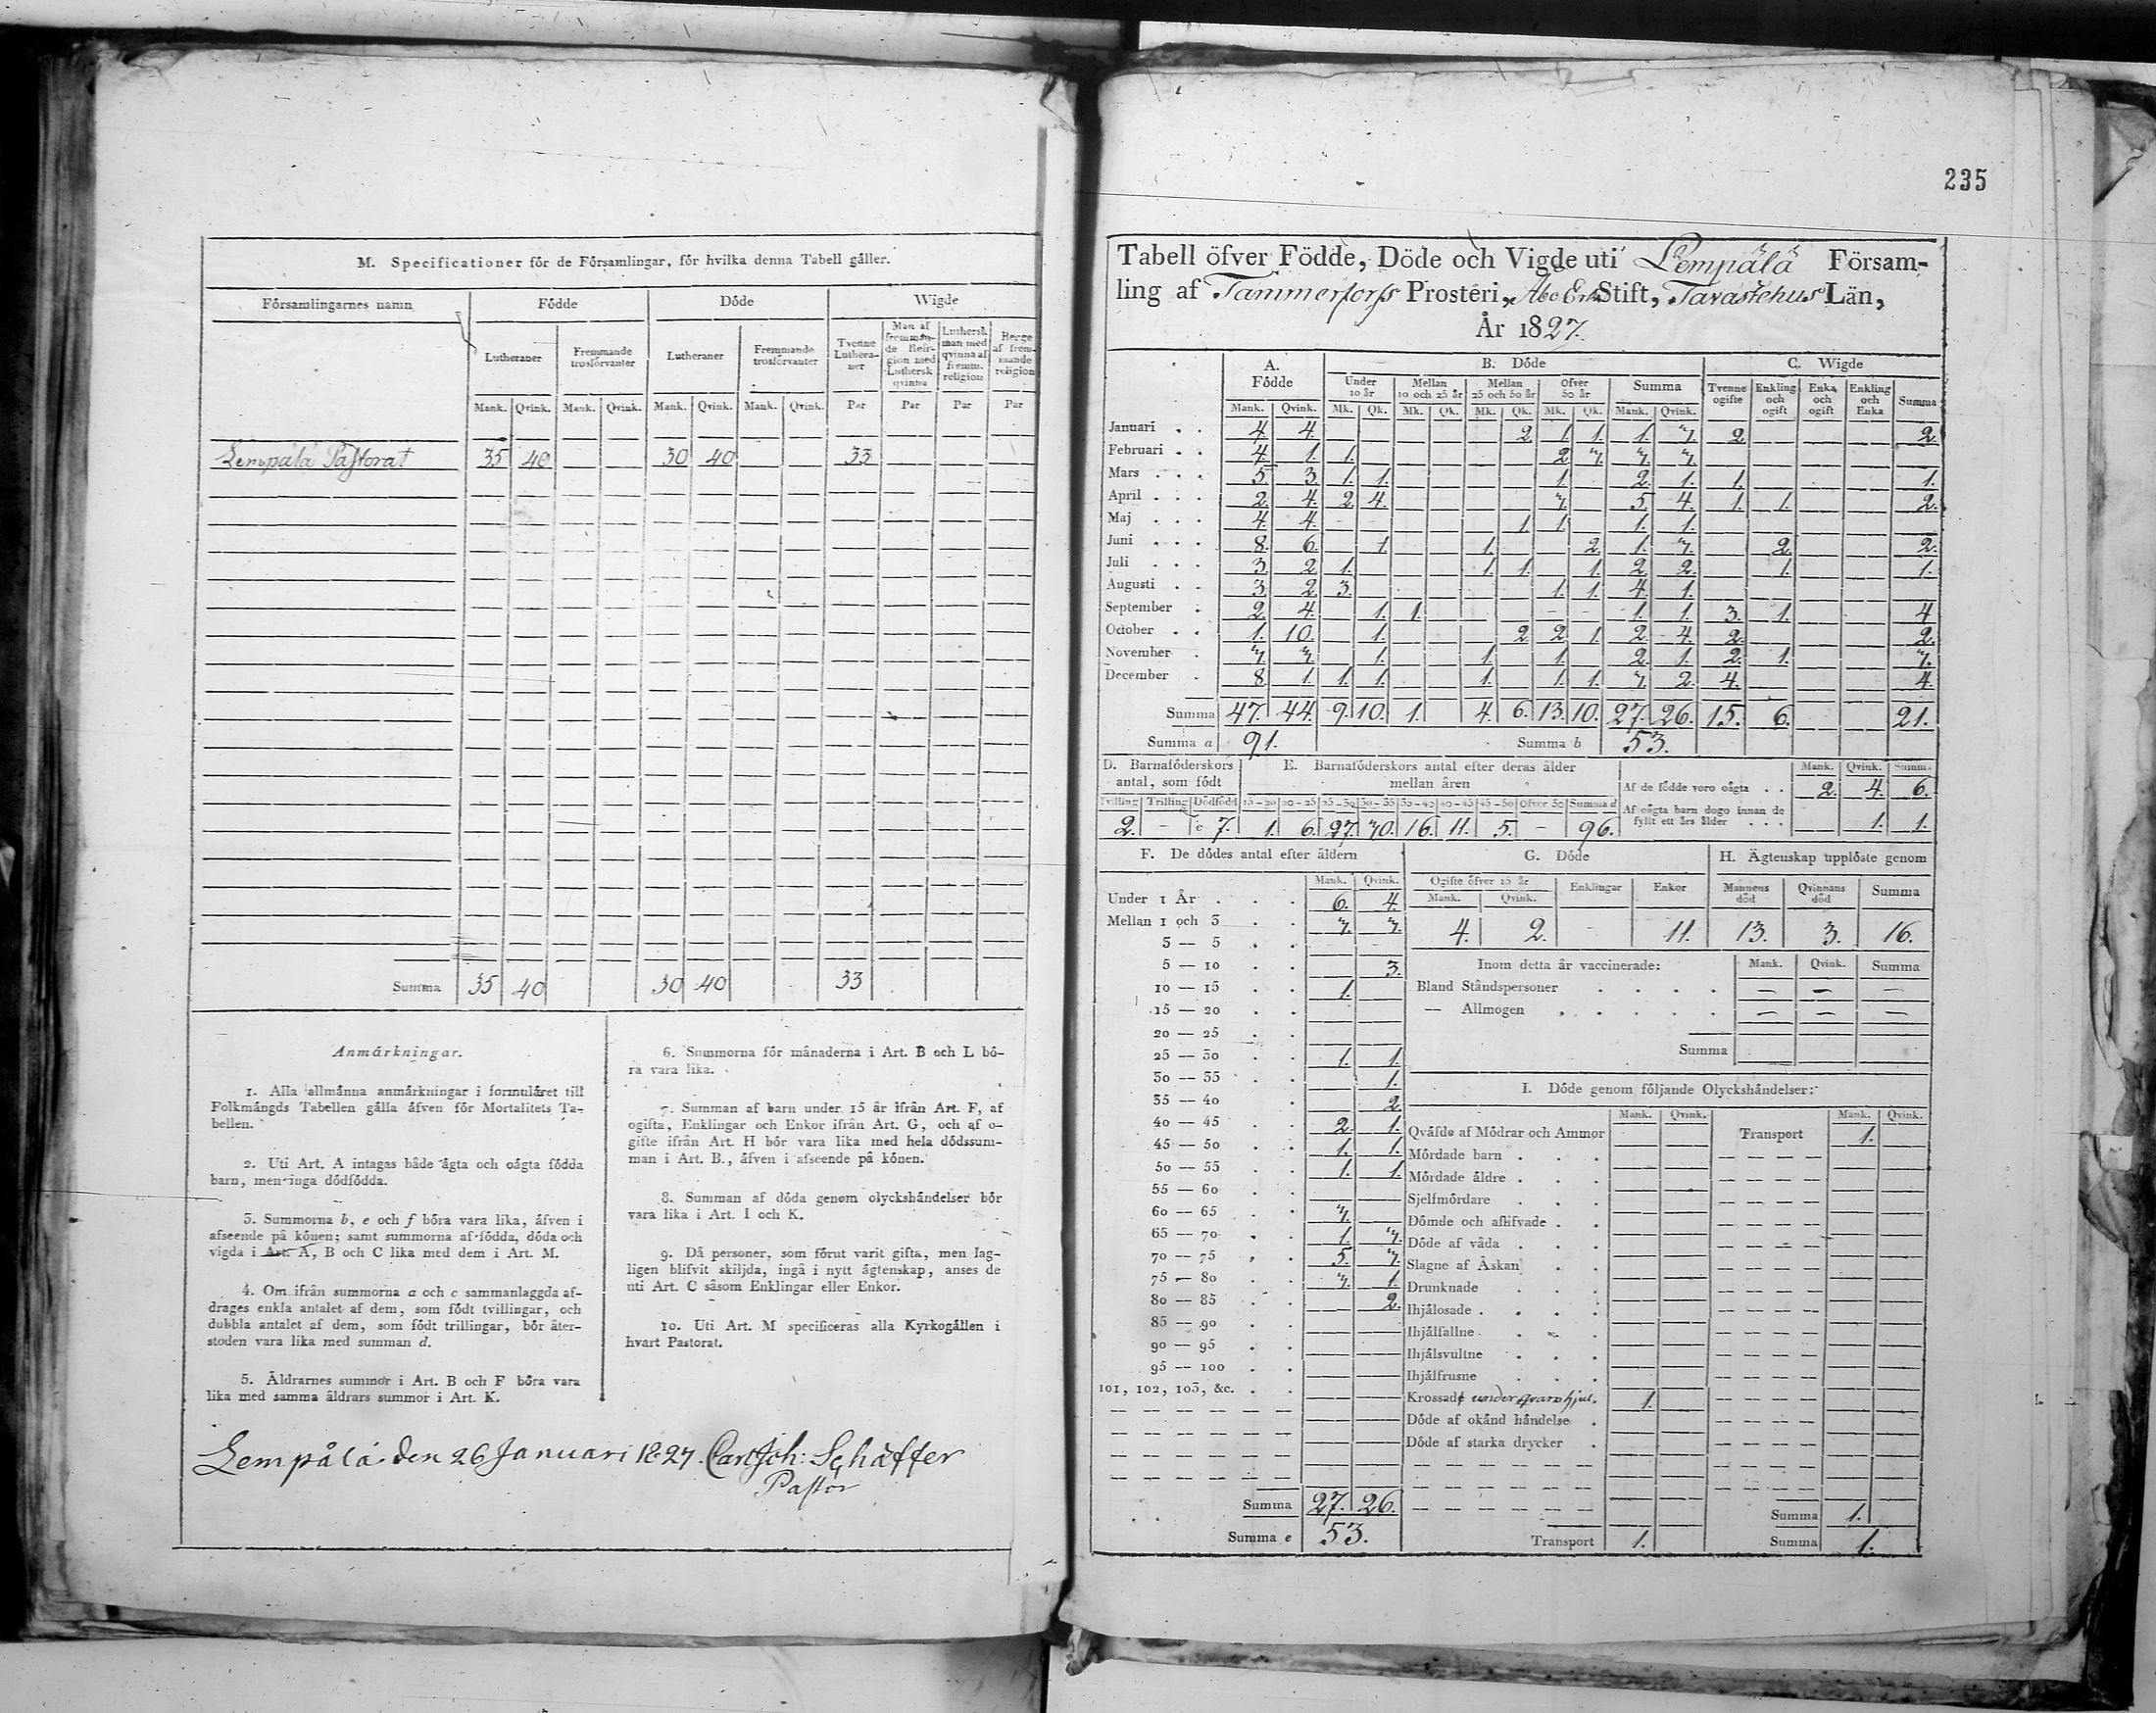 M. Specificationer för de Församlingar, för hvilka denna Tabell gäller.
Församlingarnes namn | Födde | Döde | Wigde
Lutheraner | Fremmande trosförvanter | Lutheraner | Fremmande trosförvanter | Tvenne Lutheraner | Man af fremmande Religion med Luthersk qvinna | Luthersk man med qvinna af fremm. religion | Begge af fremmande religion
Mank. | Qvink. | Mank. | Qvink. | Mank. | Qvink. | Mank. | Qvink. | Par | Par | Par | Par
Lempälä Pastorat | 35 | 40 | 30 | 40 | 33
Summa | 35 | 40 | 30 | 40 | 33
Anmärkningar.
1. Alla allmänna anmärkningar i formuläret till
Folkmängds Tabellen gälla äfven för Mortalitets Ta-
bellen.
2. Uti Art. A intagas både ägta och oägta födda
barn, men inga dödfödda.
3. Summorna b, e och f böra vara lika, äfven i
afseende på könen; samt summorna af födda, döda och
vigda i Art. A, B och C lika med dem i Art. M.
4. Om ifrån summorna a och c sammanlaggda af-
drages enkla antalet af dem, som födt tvillingar, och
dubbla antalet af dem, som födt trillingar, bör åter-
stoden vara lika med summan d.
5. Äldrarnes summor i Art. B och F böra vara
lika med samma äldrars summor i Art. K.
6. Summorna för månaderna i Art. B och L bö-
ra vara lika.
7. Summan af barn under 15 år ifrån Art. F, af
ogifta, Enklingar och Enkor ifrån Art. G, och af o-
gifte ifrån Art. H bör vara lika med hela dödssum-
man i Art. B., äfven i afseende på könen.
8. Summan af döda genom olyckshändelser bör
vara lika i Art. I och K.
9. Då personer, som förut varit gifta, men lag-
ligen blifvit skiljda, ingå i nytt ägtenskap, anses de
uti Art. C såsom Enklingar eller Enkor.
10. Uti Art. M specificeras alla Kyrkogällen i
hvart Pastorat.
Lempälä den 26 Januari 1827. Carl Joh: Schäffer
Pastor
235
Tabell öfver Födde, Döde och Vigde uti Lempälä Försam-
ling af Tammerforss Prosteri, Åbo Erke Stift, Tavastehus Län,
År 1827.
A. Födde | B. Döde | C. Wigde
Under 10 år | Mellan 10 och 25 år | Mellan 25 och 50 år | Öfver 50 år | Summa | Tvenne ogifte | Enkling och ogift | Enka och ogift | Enkling och Enka | Summa
Mank. | Qvink. | Mk. | Qk. | Mk. | Qk. | Mk. | Qk. | Mk. | Qk. | Mank. | Qvink.
Januari | 4. | 4. | 2. | 1. | 1. | 1. | 3. | 2. | 2.
Februari | 4. | 1. | 1. | 2. | 3. | 3. | 3.
Mars | 5. | 3. | 1. | 1. | 1. | 2. | 1. | 1. | 1.
April | 2. | 4. | 2. | 4. | 3. | 5. | 4. | 1. | 1. | 2.
Maj | 4. | 4. | 1. | 1. | 1. | 1.
Juni | 8. | 6. | 1. | 1. | 2. | 1. | 3. | 2. | 2.
Juli | 3. | 2. | 1. | 1. | 1. | 1. | 2. | 2. | 1. | 1.
Augusti | 3. | 2. | 3. | 1. | 1. | 4. | 1.
September | 2. | 4. | 1. | 1. | 1. | 1. | 3. | 1. | 4
October | 1. | 10. | 1. | 2. | 2. | 1. | 2. | 4. | 2. | 2.
November | 3. | 3. | 1. | 1. | 1. | 2. | 1. | 2. | 1. | 3.
December | 8. | 1. | 1. | 1. | 1. | 1. | 1. | 3. | 2. | 4. | 4.
Summa | 47. | 44. | 9. | 10. | 1. | 4. | 6. | 13. | 10. | 27. | 26. | 15. | 6. | 21.
Summa a | 91. | Summa b | 53.
D. Barnaföderskors antal, som födt | E. Barnaföderskors antal efter deras ålder mellan åren
Mank. | Qvink. | Summa
Af de födde voro oägta | 2. | 4. | 6.
Af oägta barn dogo innan de fyllt ett års ålder | 1. | 1.
Tvilling | Trilling | Dödfödd | 15-20 | 20-25 | 25-30 | 30-35 | 35-40 | 40-45 | 45-50 | Öfver 50 | Summa d
2. | - | c 7. | 1. | 6. | 27. | 30. | 16. | 11. | 5. | - | 96.
F. De dödes antal efter åldern
Mank. | Qvink.
Under 1 År | 6. | 4.
Mellan 1 och 3 | 3. | 3.
3 — 5
5 — 10 | 3.
10 — 15 | 1.
15 — 20
20 — 25
25 — 30 | 1. | 1.
30 — 35 | 1.
35 — 40 | 2.
40 — 45 | 2. | 1.
45 — 50 | 1. | 1.
50 — 55 | 1. | 1.
55 — 60
60 — 65 | 3.
65 — 70 | 1. | 3.
70 — 75 | 5. | 3.
75 — 80 | 3. | 1.
80 — 85 | 2.
85 — 90
90 — 95
95 — 100
101, 102, 103, &c.
Summa | 27. | 26.
Summa e | 53.
G. Döde | H. Ägtenskap upplöste genom
Ogifte öfver 15 år | Enklingar | Enkor | Mannens död | Qvinnans död | Summa
Mank. | Qvink.
4. | 2. | - | 11. | 13. | 3. | 16.
Inom detta år vaccinerade: | Mank. | Qvink. | Summa
Bland Ståndspersoner | — | — | —
— Allmogen | — | — | —
Summa
I. Döde genom följande Olyckshändelser:
Mank. | Qvink. | Mank. | Qvink.
Qväfde af Mödrar och Ammor | Transport | 1.
Mördade barn
Mördade äldre
Sjelfmördare
Dömde och aflifvade
Döde af våda
Slagne af Åskan
Drunknade
Ihjälosade
Ihjälfallne
Ihjälsvultne
Ihjälfrusne
Krossade under qvarnhjul. | 1.
Döde af okänd händelse
Döde af starka drycker
Summa | 1.
Transport | 1. | Summa | 1.